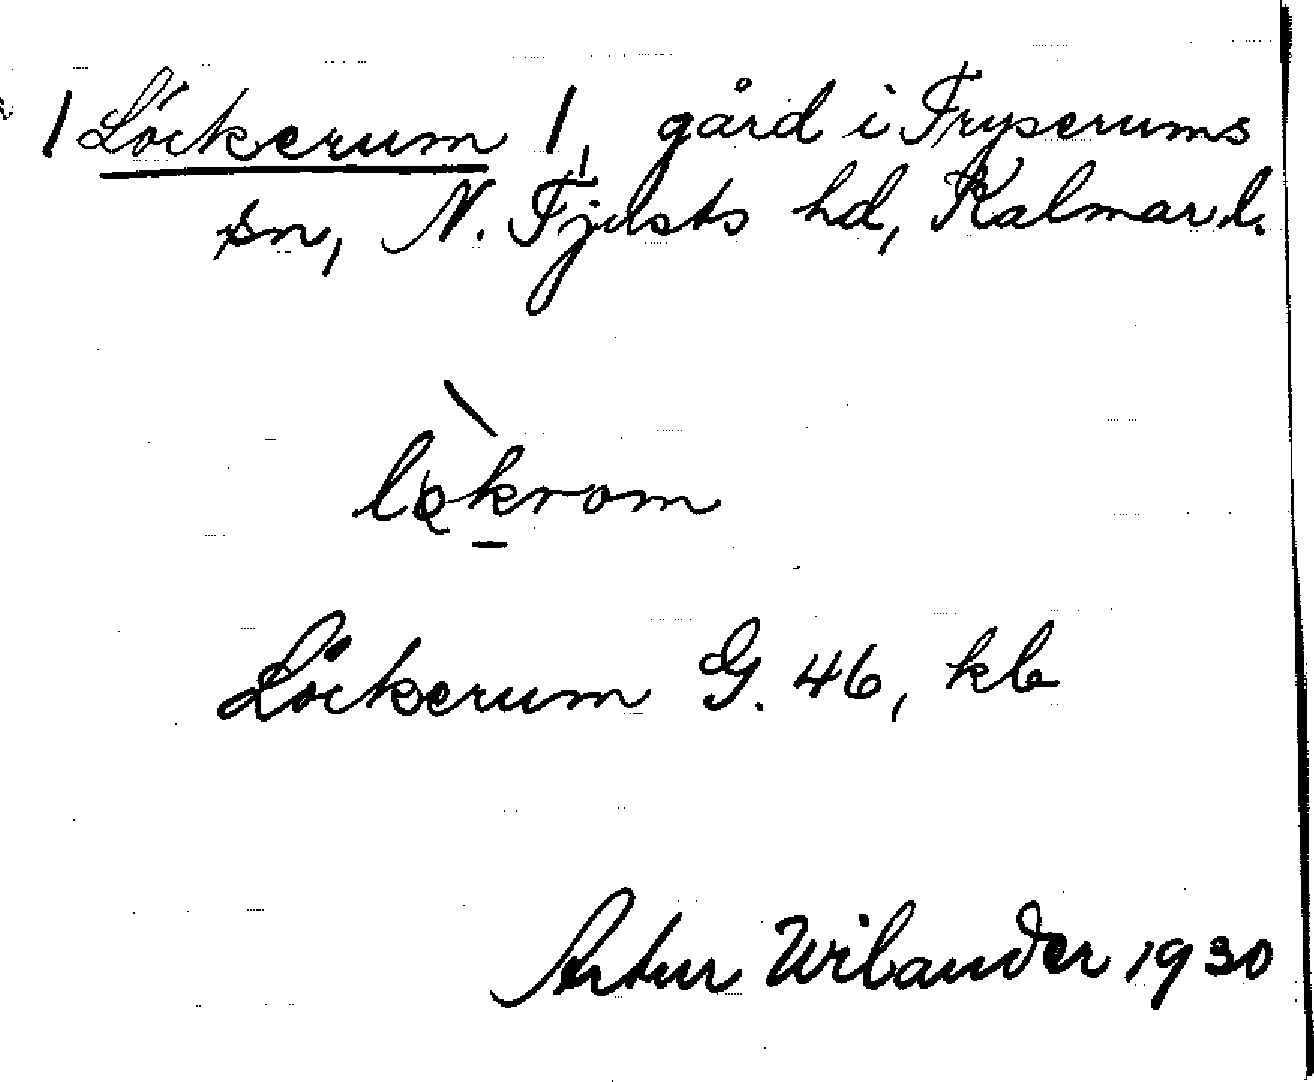 / Löckerum /, gård i Fryserums
sn, N. Tjusts hd, Kalmar l.
Löckerum G. 46, kb
Artur Wilander 1930